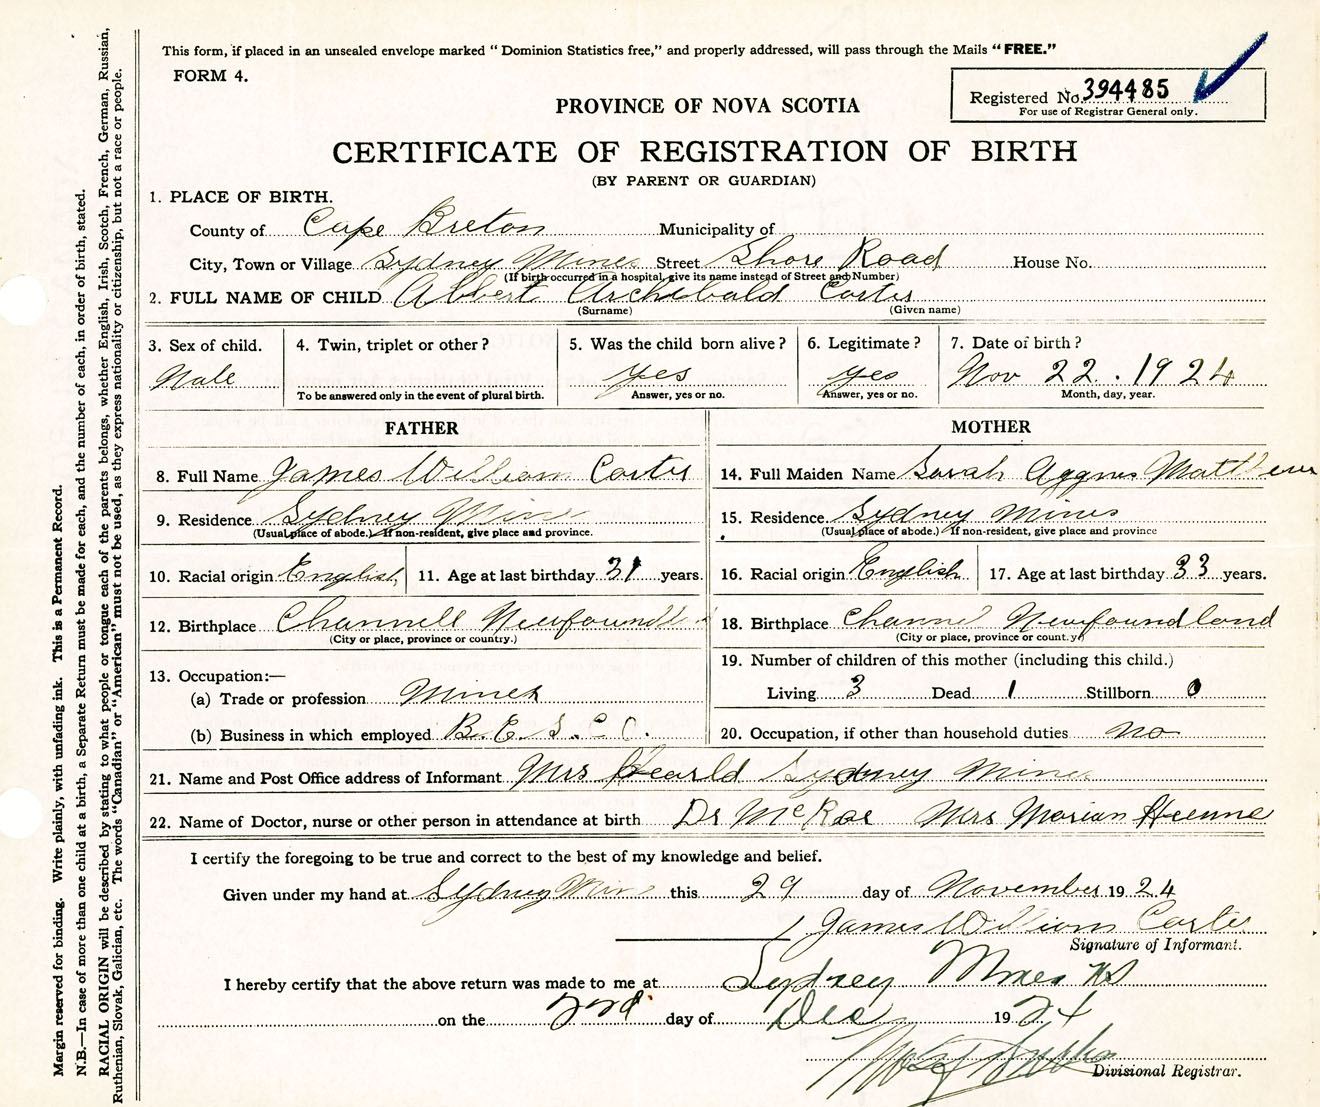 This form, if placed in an unsealed envelope marked “ Dominion Statistics free,” and properly addressed, will pass through the Mails “ FREE.”
FORM 4.
Registered No. 394485
For use of Registrar General only.
PROVINCE OF NOVA SCOTIA
CERTIFICATE OF REGISTRATION OF BIRTH
(BY PARENT OR GUARDIAN)
1. PLACE OF BIRTH.
County of Cape Breton Municipality of
City, Town or Village Sydney Mines Street Shore Road House No.
(If birth occurred in a hospital, give its name instead of Street and Number)
2. FULL NAME OF CHILD Albert Archibald
(Surname) (Given name)
3. Sex of child. 4. Twin, triplet or other ? 5. Was the child born alive ? 6. Legitimate ? 7. Date of birth ?
Male yes yes Nov 22. 1924
To be answered only in the event of plural birth. Answer, yes or no. Answer, yes or no. Month, day, year.
FATHER MOTHER
8. Full Name James William 14. Full Maiden Name Sarah Aggnes
9. Residence Sydney Mines 15. Residence Sydney Mines
(Usual place of abode.) If non-resident, give place and province. (Usual place of abode.) If non-resident, give place and province
10. Racial origin English 11. Age at last birthday 31 years. 16. Racial origin English 17. Age at last birthday 33 years.
12. Birthplace Channell 18. Birthplace Newfoundland
(City or place, province or country.) (City or place, province or country)
13. Occupation:— 19. Number of children of this mother (including this child.)
(a) Trade or profession Miner Living 3 Dead 1 Stillborn 0
(b) Business in which employed B. E. S. C. C. 20. Occupation, if other than household duties no
21. Name and Post Office address of Informant Mrs Sydney Mines
22. Name of Doctor, nurse or other person in attendance at birth Dr McRae Mrs Marian
I certify the foregoing to be true and correct to the best of my knowledge and belief.
Given under my hand at Sydney Mines this 29 day of November 1924
James William
Signature of Informant.
I hereby certify that the above return was made to me at Sydney Mines NS
on the 2nd day of Dec 1924
Divisional Registrar.
Margin reserved for binding. Write plainly, with unfading ink. This is a Permanent Record.
N.B.—In case of more than one child at a birth, a Separate Return must be made for each, and the number of each, in order of birth, stated.
RACIAL ORIGIN will be described by stating to what people or tongue each of the parents belongs, whether English, Irish, Scotch, French, German, Russian,
Ruthenian, Slovak, Galician, etc. The words “Canadian” or “American” must not be used, as they express nationality or citizenship, but not a race or people.